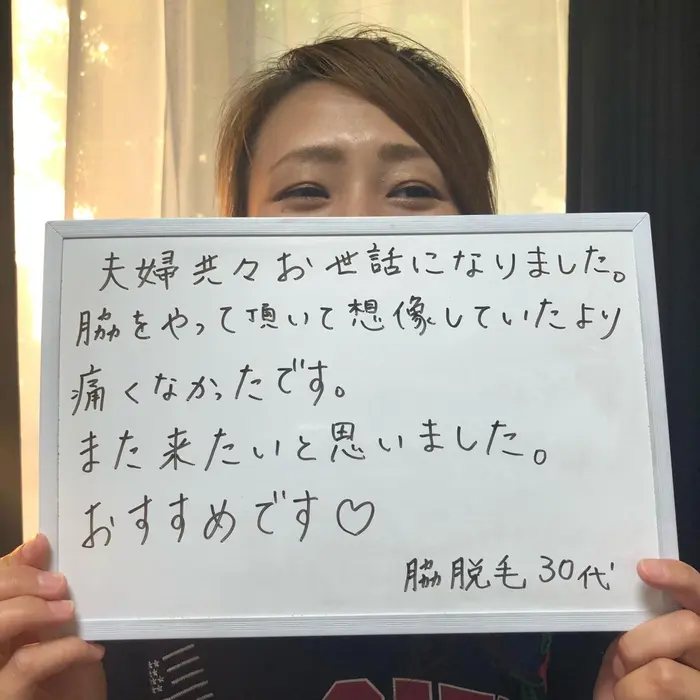 夫婦共々お世話になりました。
脇をやって頂いて想像していたより
痛くなかったです。
また来たいと思いました。
おすすめです♡
脇脱毛30代